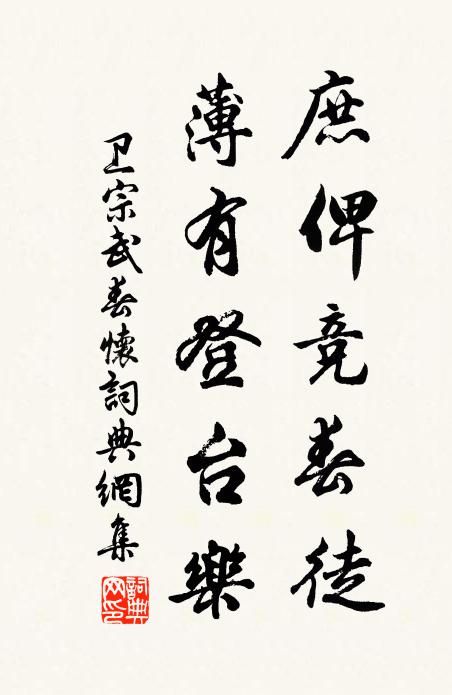 庶俾竞春徒
薄有登台樂
卫宗武春懷詞典網集
詞典网印